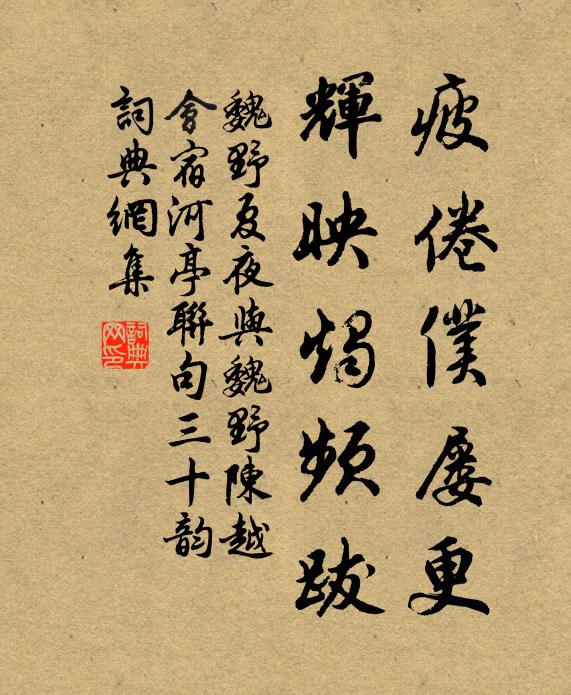 疲倦僕屢更
輝映燭頻跋
魏野夏夜與魏野陳越
會宿河亭聯句三十韵
詞典網集
詞典网印